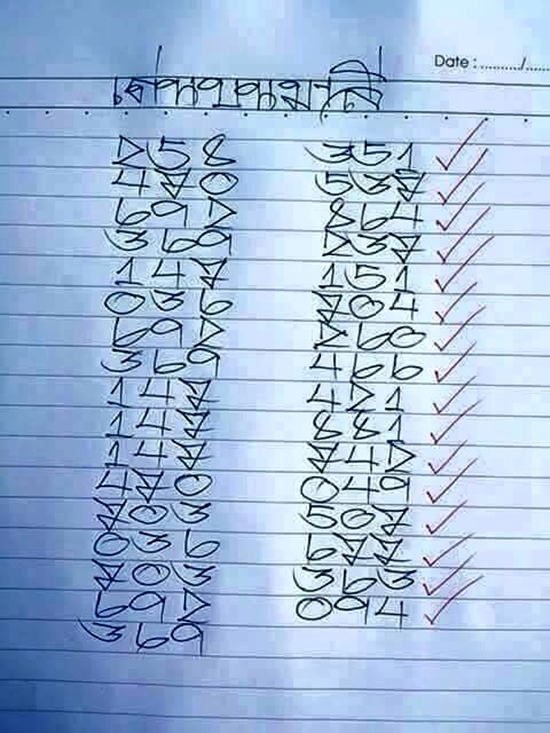 Date : ........../......
258 351 ✓
470 537 ✓
692 864 ✓
369 237 ✓
147 151 ✓
036 704 ✓
692 260 ✓
369 466 ✓
147 421 ✓
147 881 ✓
147 742 ✓
470 049 ✓
703 507 ✓
036 677 ✓
703 363 ✓
692 094 ✓
369